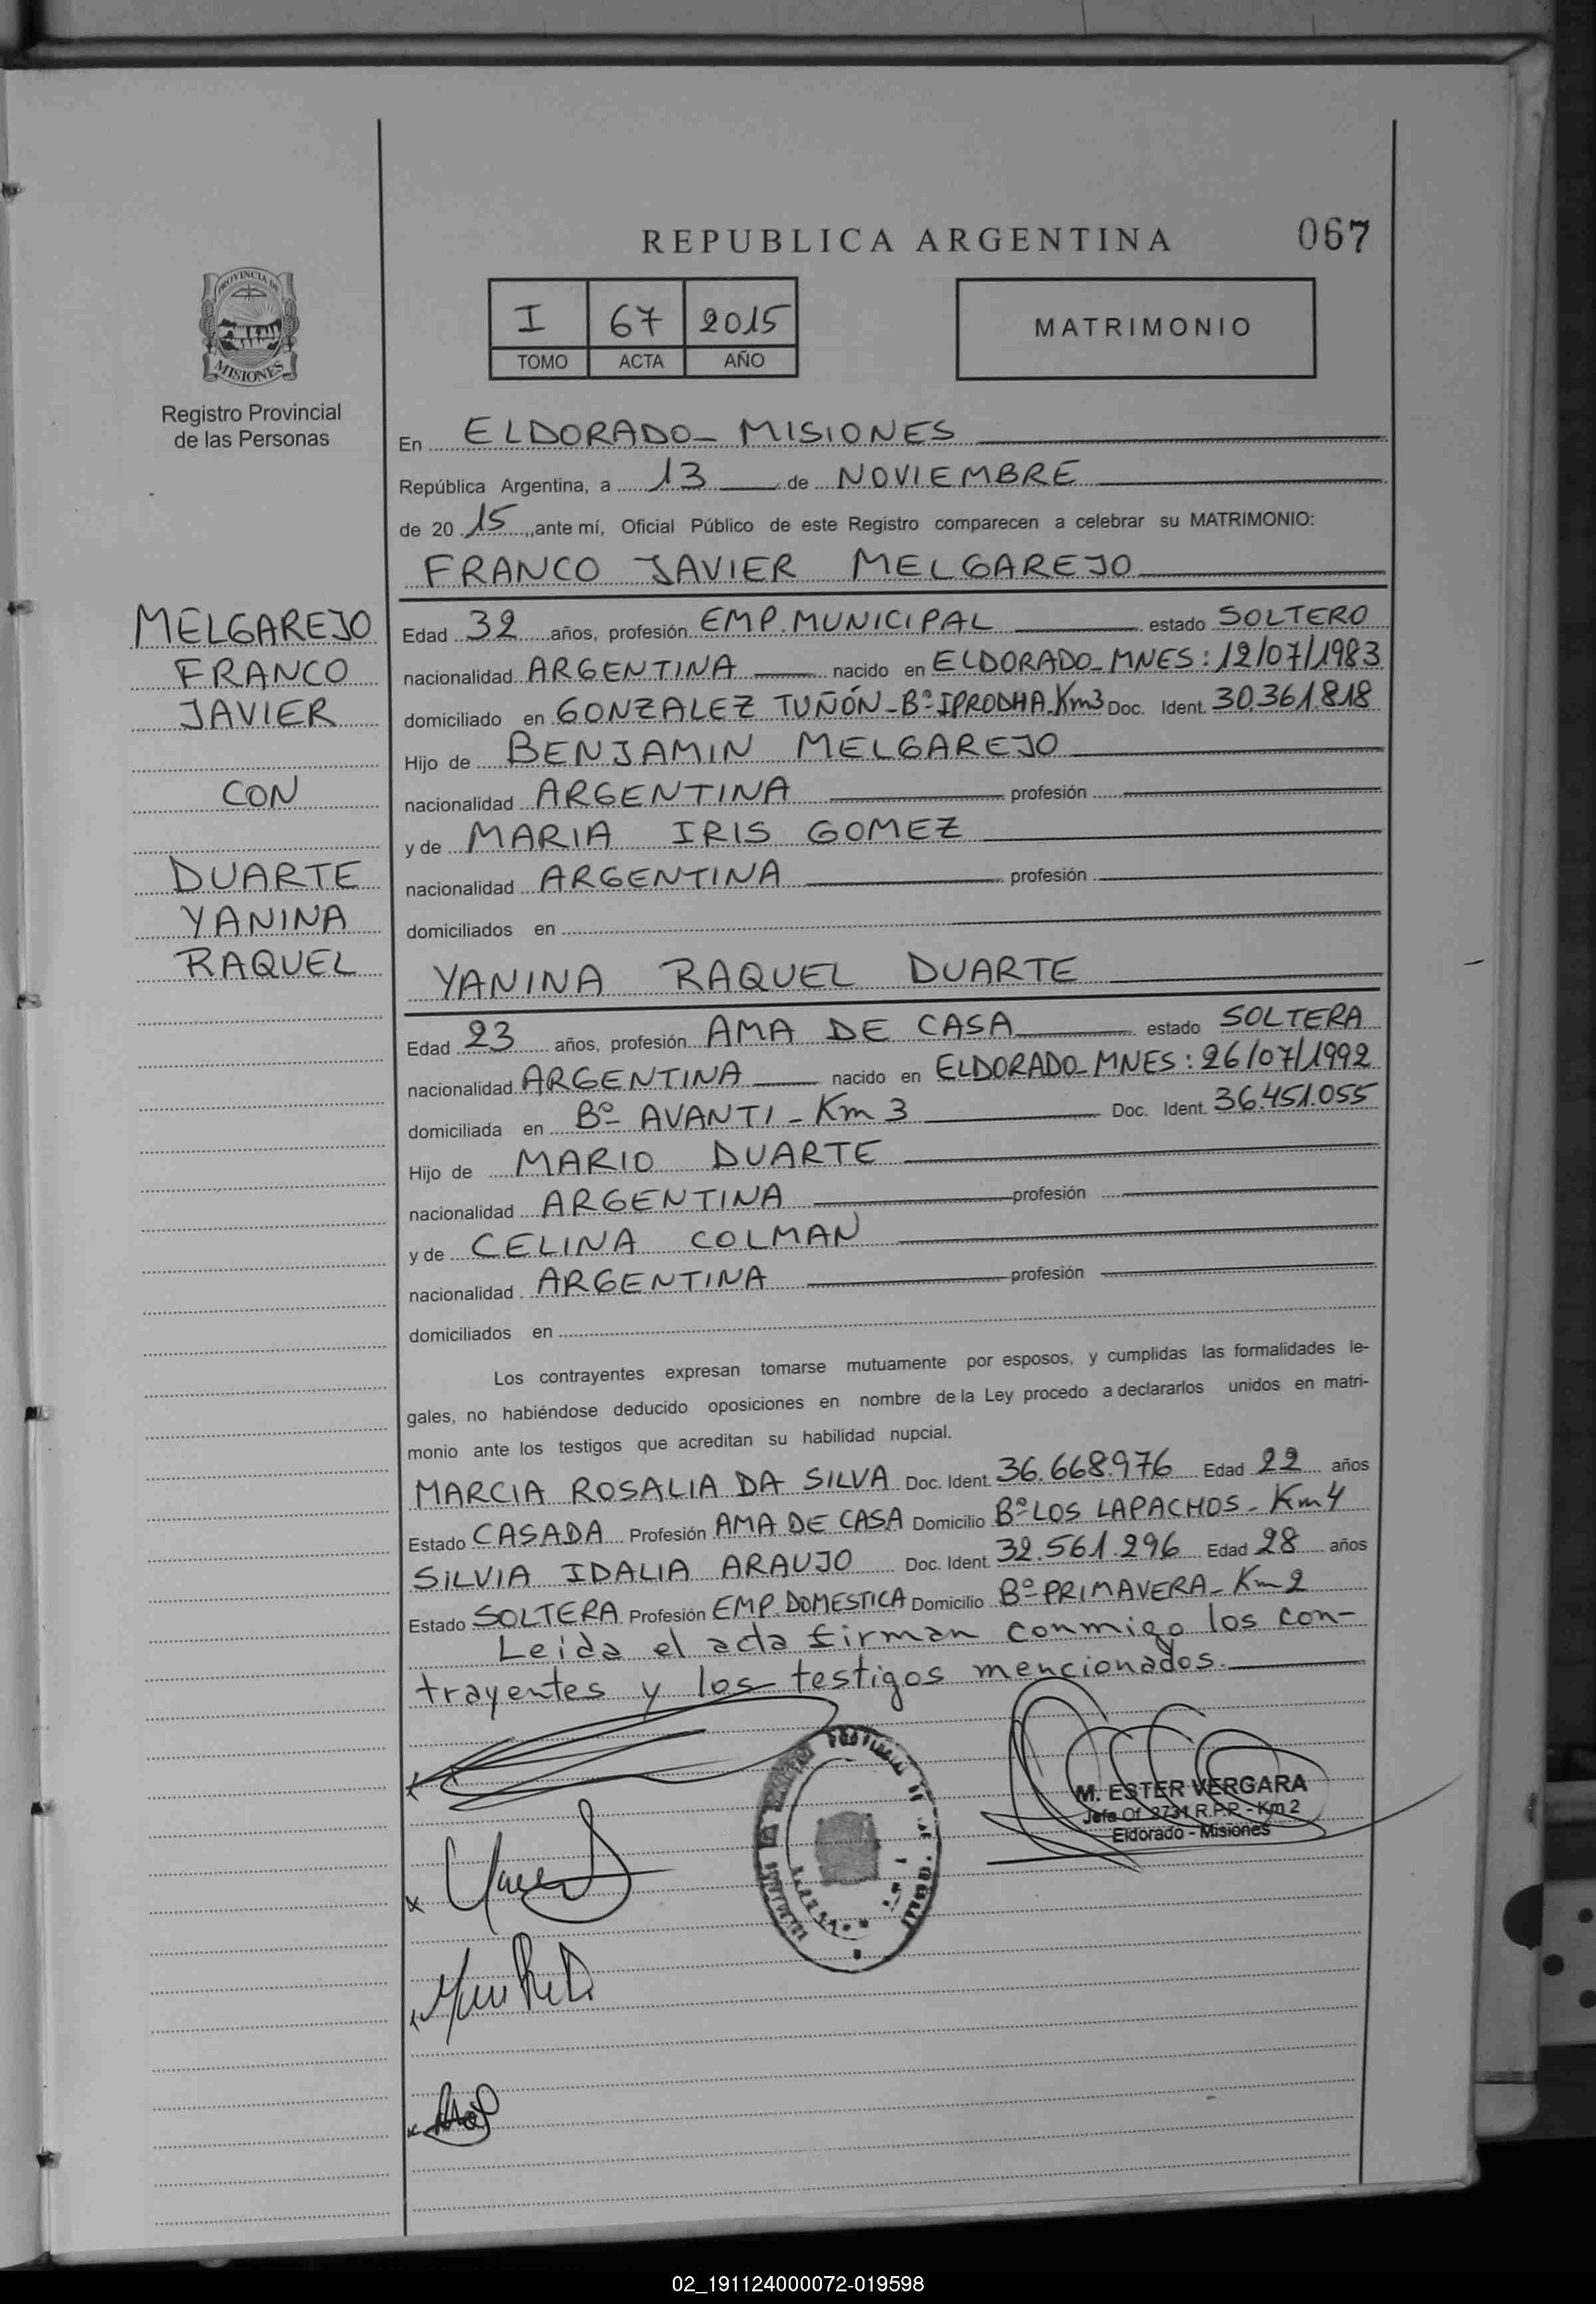 REPUBLICA ARGENTINA
067
PROVINCIA DE
MISIONES
Registro Provincial
de las Personas
I 67 2015
TOMO ACTA AÑO
MATRIMONIO
En ELDORADO - MISIONES
República Argentina, a 13 de NOVIEMBRE
de 20 15, ante mí, Oficial Público de este Registro comparecen a celebrar su MATRIMONIO:
FRANCO JAVIER MELGAREJO
MELGAREJO
FRANCO
JAVIER
CON
DUARTE
YANINA
RAQUEL
Edad 32 años, profesión EMP. MUNICIPAL estado SOLTERO
nacionalidad ARGENTINA nacido en ELDORADO - MNES: 12/07/1983
domiciliado en GONZALEZ TUÑÓN - Bº IPRODHA. Km3 Doc. Ident. 30.361.818
Hijo de BENJAMIN MELGAREJO
nacionalidad ARGENTINA profesión
y de MARIA IRIS GOMEZ
nacionalidad ARGENTINA profesión
domiciliados en
YANINA RAQUEL DUARTE
Edad 23 años, profesión AMA DE CASA estado SOLTERA
nacionalidad ARGENTINA nacido en ELDORADO - MNES: 26/07/1992
domiciliada en Bº AVANTI - Km 3 Doc. Ident. 36.451.055
Hijo de MARIO DUARTE
nacionalidad ARGENTINA profesión
y de CELINA COLMAN
nacionalidad ARGENTINA profesión
domiciliados en
Los contrayentes expresan tomarse mutuamente por esposos, y cumplidas las formalidades le-
gales, no habiéndose deducido oposiciones en nombre de la Ley procedo a declararlos unidos en matri-
monio ante los testigos que acreditan su habilidad nupcial.
MARCIA ROSALIA DA SILVA Doc. Ident. 36.668.976 Edad 22 años
Estado CASADA Profesión AMA DE CASA Domicilio Bº LOS LAPACHOS - Km 4
SILVIA IDALIA ARAUJO Doc. Ident. 32.561.296 Edad 28 años
Estado SOLTERA Profesión EMP. DOMESTICA Domicilio Bº PRIMAVERA - Km 2
Leida el acta firman conmigo los con-
trayentes y los testigos mencionados.
M. ESTER VERGARA
Jefa Of. 3731 R.P.P. - Km 2
Eldorado - Misiones
02_191124000072-019598